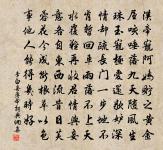 漢帝寵阿嬌貯之黃金
屋咳唾落九天隨風生
珠玉寵極愛還歇妒深
情卻疏長門一步地不
肯暫回車雨落不上天
水覆難再收君情與妾
意各自東西流昔日芙
蓉花今成斷根草以色
事他人能得幾時好
李白妾薄命